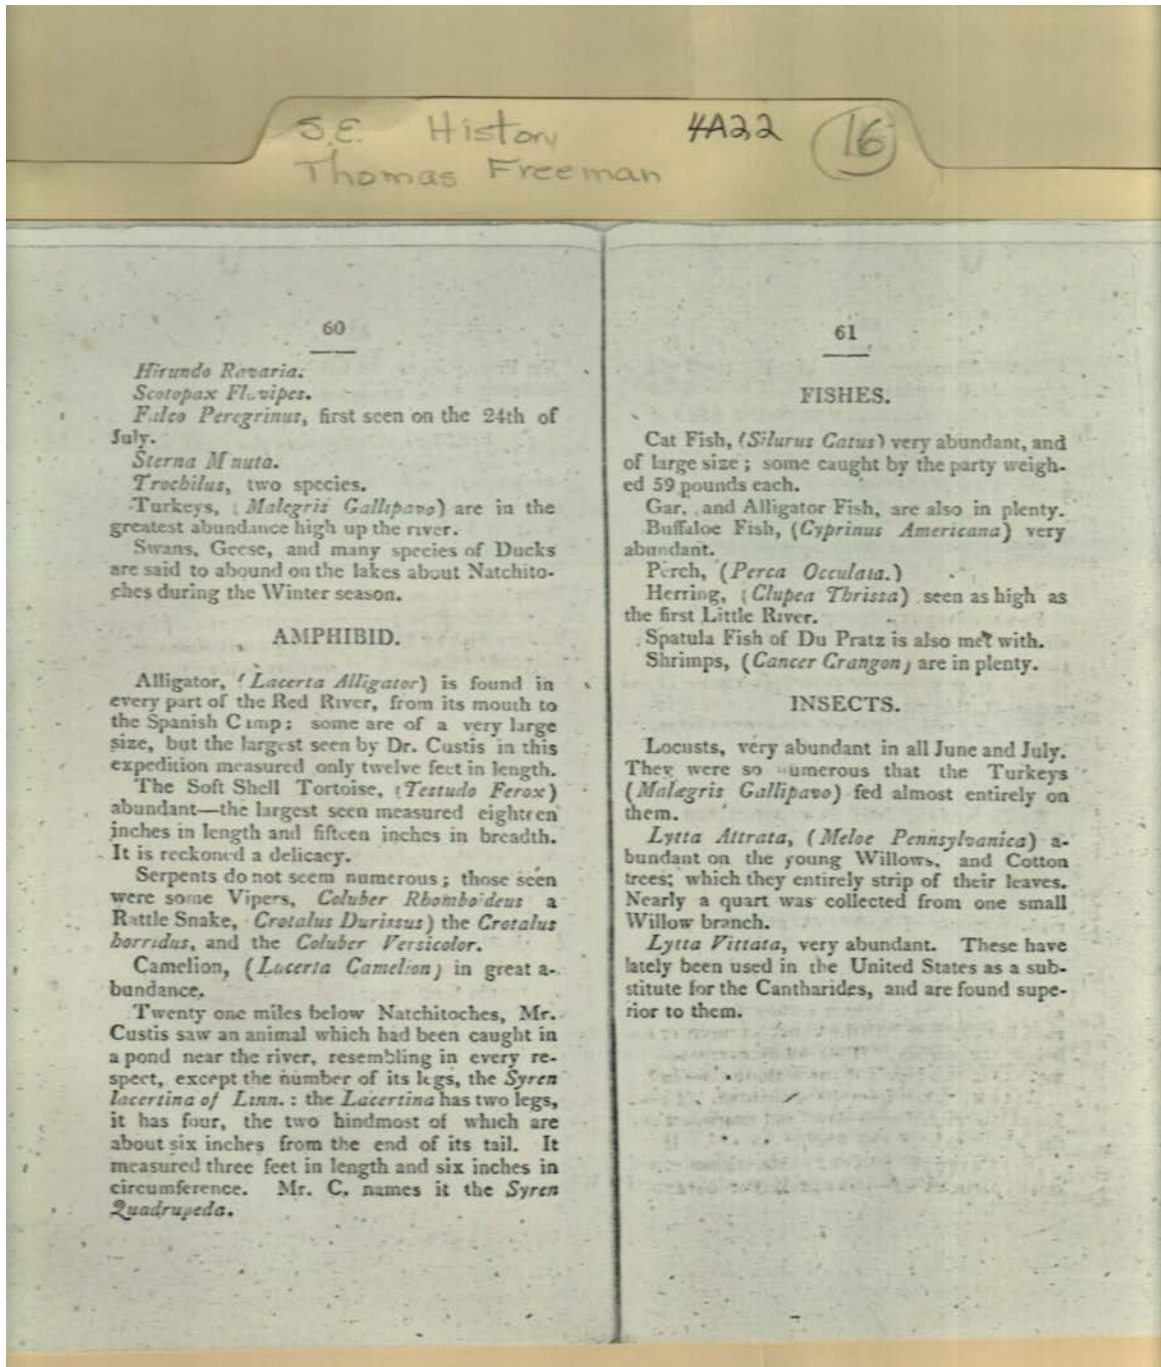 S.E. History 4A22 16
Thomas Freeman
60
Hirundo Ravaria.
Scotopax Flavipes.
Falco Peregrinus, first seen on the 24th of
July.
Sterna M nuta.
Trochilus, two species.
Turkeys, (Malegris Gallipavo) are in the
greatest abundance high up the river.
Swans, Geese, and many species of Ducks
are said to abound on the lakes about Natchito-
ches during the Winter season.
AMPHIBID.
Alligator, (Lacerta Alligator) is found in
every part of the Red River, from its mouth to
the Spanish Camp; some are of a very large
size, but the largest seen by Dr. Custis in this
expedition measured only twelve feet in length.
The Soft Shell Tortoise, (Testudo Ferox)
abundant—the largest seen measured eighteen
inches in length and fifteen inches in breadth.
It is reckoned a delicacy.
Serpents do not seem numerous; those seen
were some Vipers, Coluber Rhomboideus a
Rattle Snake, Crotalus Durissus) the Crotalus
horridus, and the Coluber Versicolor.
Camelion, (Lacerta Camelion) in great a-
bundance.
Twenty one miles below Natchitoches, Mr.
Custis saw an animal which had been caught in
a pond near the river, resembling in every re-
spect, except the number of its legs, the Syren
lacertina of Linn.: the Lacertina has two legs,
it has four, the two hindmost of which are
about six inches from the end of its tail. It
measured three feet in length and six inches in
circumference. Mr. C. names it the Syren
Quadrupeda.
61
FISHES.
Cat Fish, (Silurus Catus) very abundant, and
of large size; some caught by the party weigh-
ed 59 pounds each.
Gar, and Alligator Fish, are also in plenty.
Buffaloe Fish, (Cyprinus Americana) very
abundant.
Perch, (Perca Occulata.)
Herring, (Clupea Thrissa) seen as high as
the first Little River.
Spatula Fish of Du Pratz is also met with.
Shrimps, (Cancer Crangon) are in plenty.
INSECTS.
Locusts, very abundant in all June and July.
They were so numerous that the Turkeys
(Malægris Gallipavo) fed almost entirely on
them.
Lytta Attrata, (Meloe Pennsylvanica) a-
bundant on the young Willows, and Cotton
trees; which they entirely strip of their leaves.
Nearly a quart was collected from one small
Willow branch.
Lytta Vittata, very abundant. These have
lately been used in the United States as a sub-
stitute for the Cantharides, and are found supe-
rior to them.